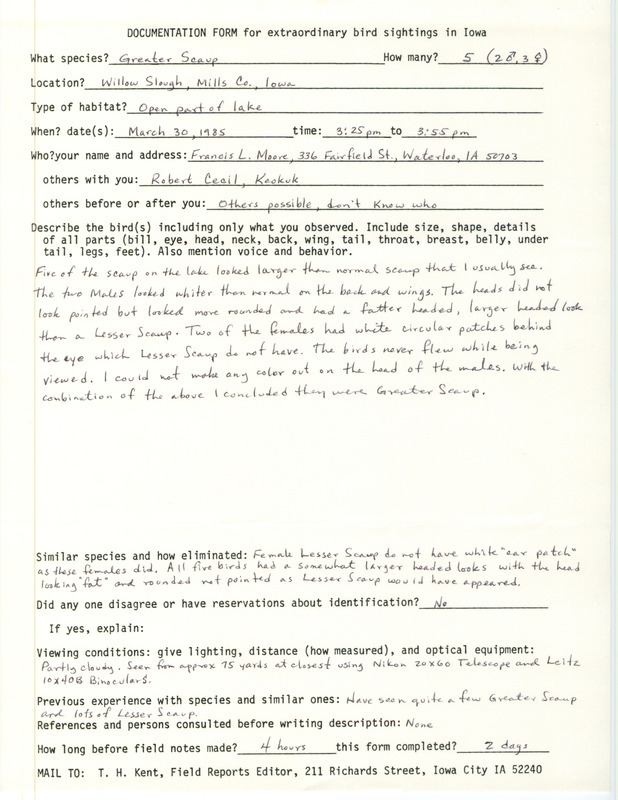 DOCUMENTATION FORM for extraordinary bird sightings in Iowa
What species? Greater Scaup How many? 5 (2♂,3♀)
Location? Willow Slough, Mills Co., Iowa
Type of habitat? Open part of lake
When? date(s): March 30, 1985 time: 3:25 pm to 3:55 pm
Who?your name and address: Francis L. Moore, 336 Fairfield St., Waterloo, IA 50703
others with you: Robert Cecil, Keokuk
others before or after you: Others possible, don't know who
Describe the bird(s) including only what you observed. Include size, shape, details
of all parts (bill, eye, head, neck, back, wing, tail, throat, breast, belly, under
tail, legs, feet). Also mention voice and behavior.
Five of the scaup on the lake looked larger than normal scaup that I usually see.
The two Males looked whiter than normal on the back and wings. The heads did not
look pointed but looked more rounded and had a fatter headed, larger headed look
than a Lesser Scaup. Two of the females had white circular patches behind
the eye which Lesser Scaup do not have. The birds never flew while being
viewed. I could not make any color out on the head of the males. With the
combination of the above I concluded they were Greater Scaup.
Similar species and how eliminated: Female Lesser Scaup do not have white "ear patch"
as these females did. All five birds had a somewhat larger headed looks with the head
looking "fat" and rounded not pointed as Lesser Scaup would have appeared.
Did any one disagree or have reservations about identification? No
If yes, explain:
Viewing conditions: give lighting, distance (how measured), and optical equipment:
Partly cloudy. Seen from approx 75 yards at closest using Nikon 20x60 Telescope and Leitz
10x40B Binoculars.
Previous experience with species and similar ones: Have seen quite a few Greater Scaup
and lots of Lesser Scaup.
References and persons consulted before writing description: None
How long before field notes made? 4 hours this form completed? 2 days
MAIL TO: T. H. Kent, Field Reports Editor, 211 Richards Street, Iowa City IA 52240